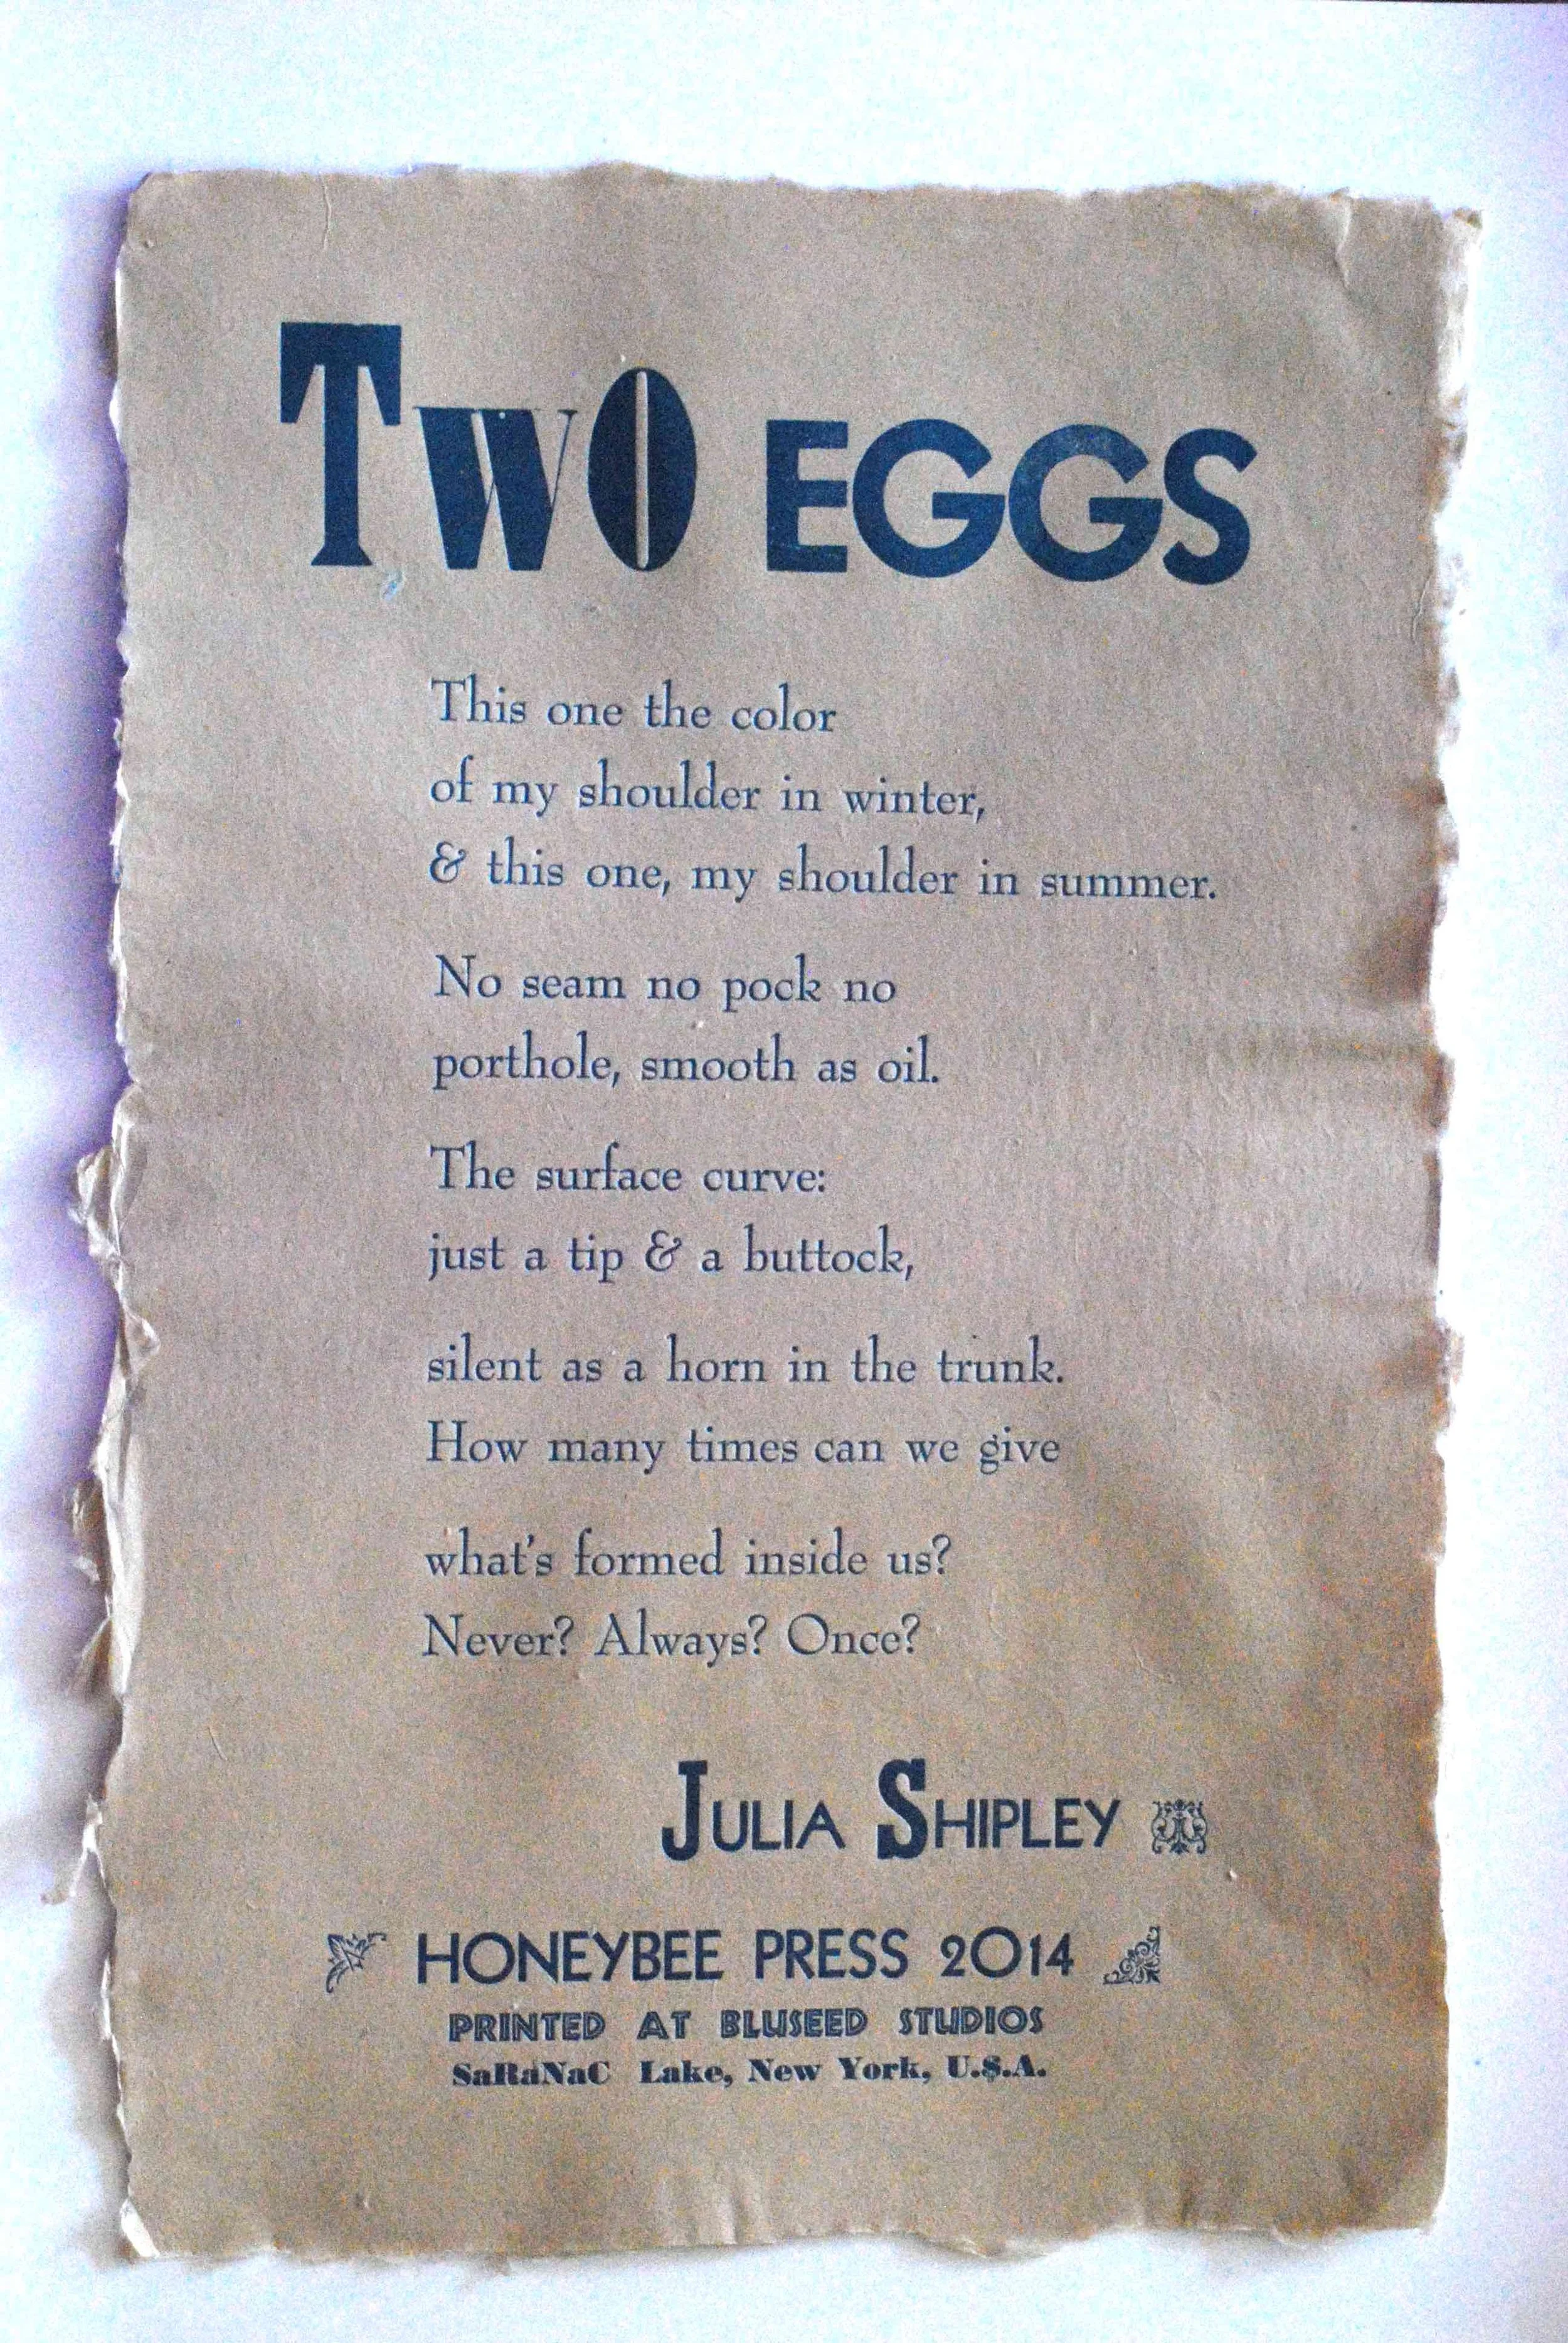 Two EGGS
This one the color
of my shoulder in winter,
& this one, my shoulder in summer.
No seam no pock no
porthole, smooth as oil.
The surface curve:
just a tip & a buttock,
silent as a horn in the trunk.
How many times can we give
what's formed inside us?
Never? Always? Once?
JULIA SHIPLEY
HONEYBEE PRESS 2014
PRINTED AT BLUSEED STUDIOS
SaRaNaC Lake, New York, U.S.A.